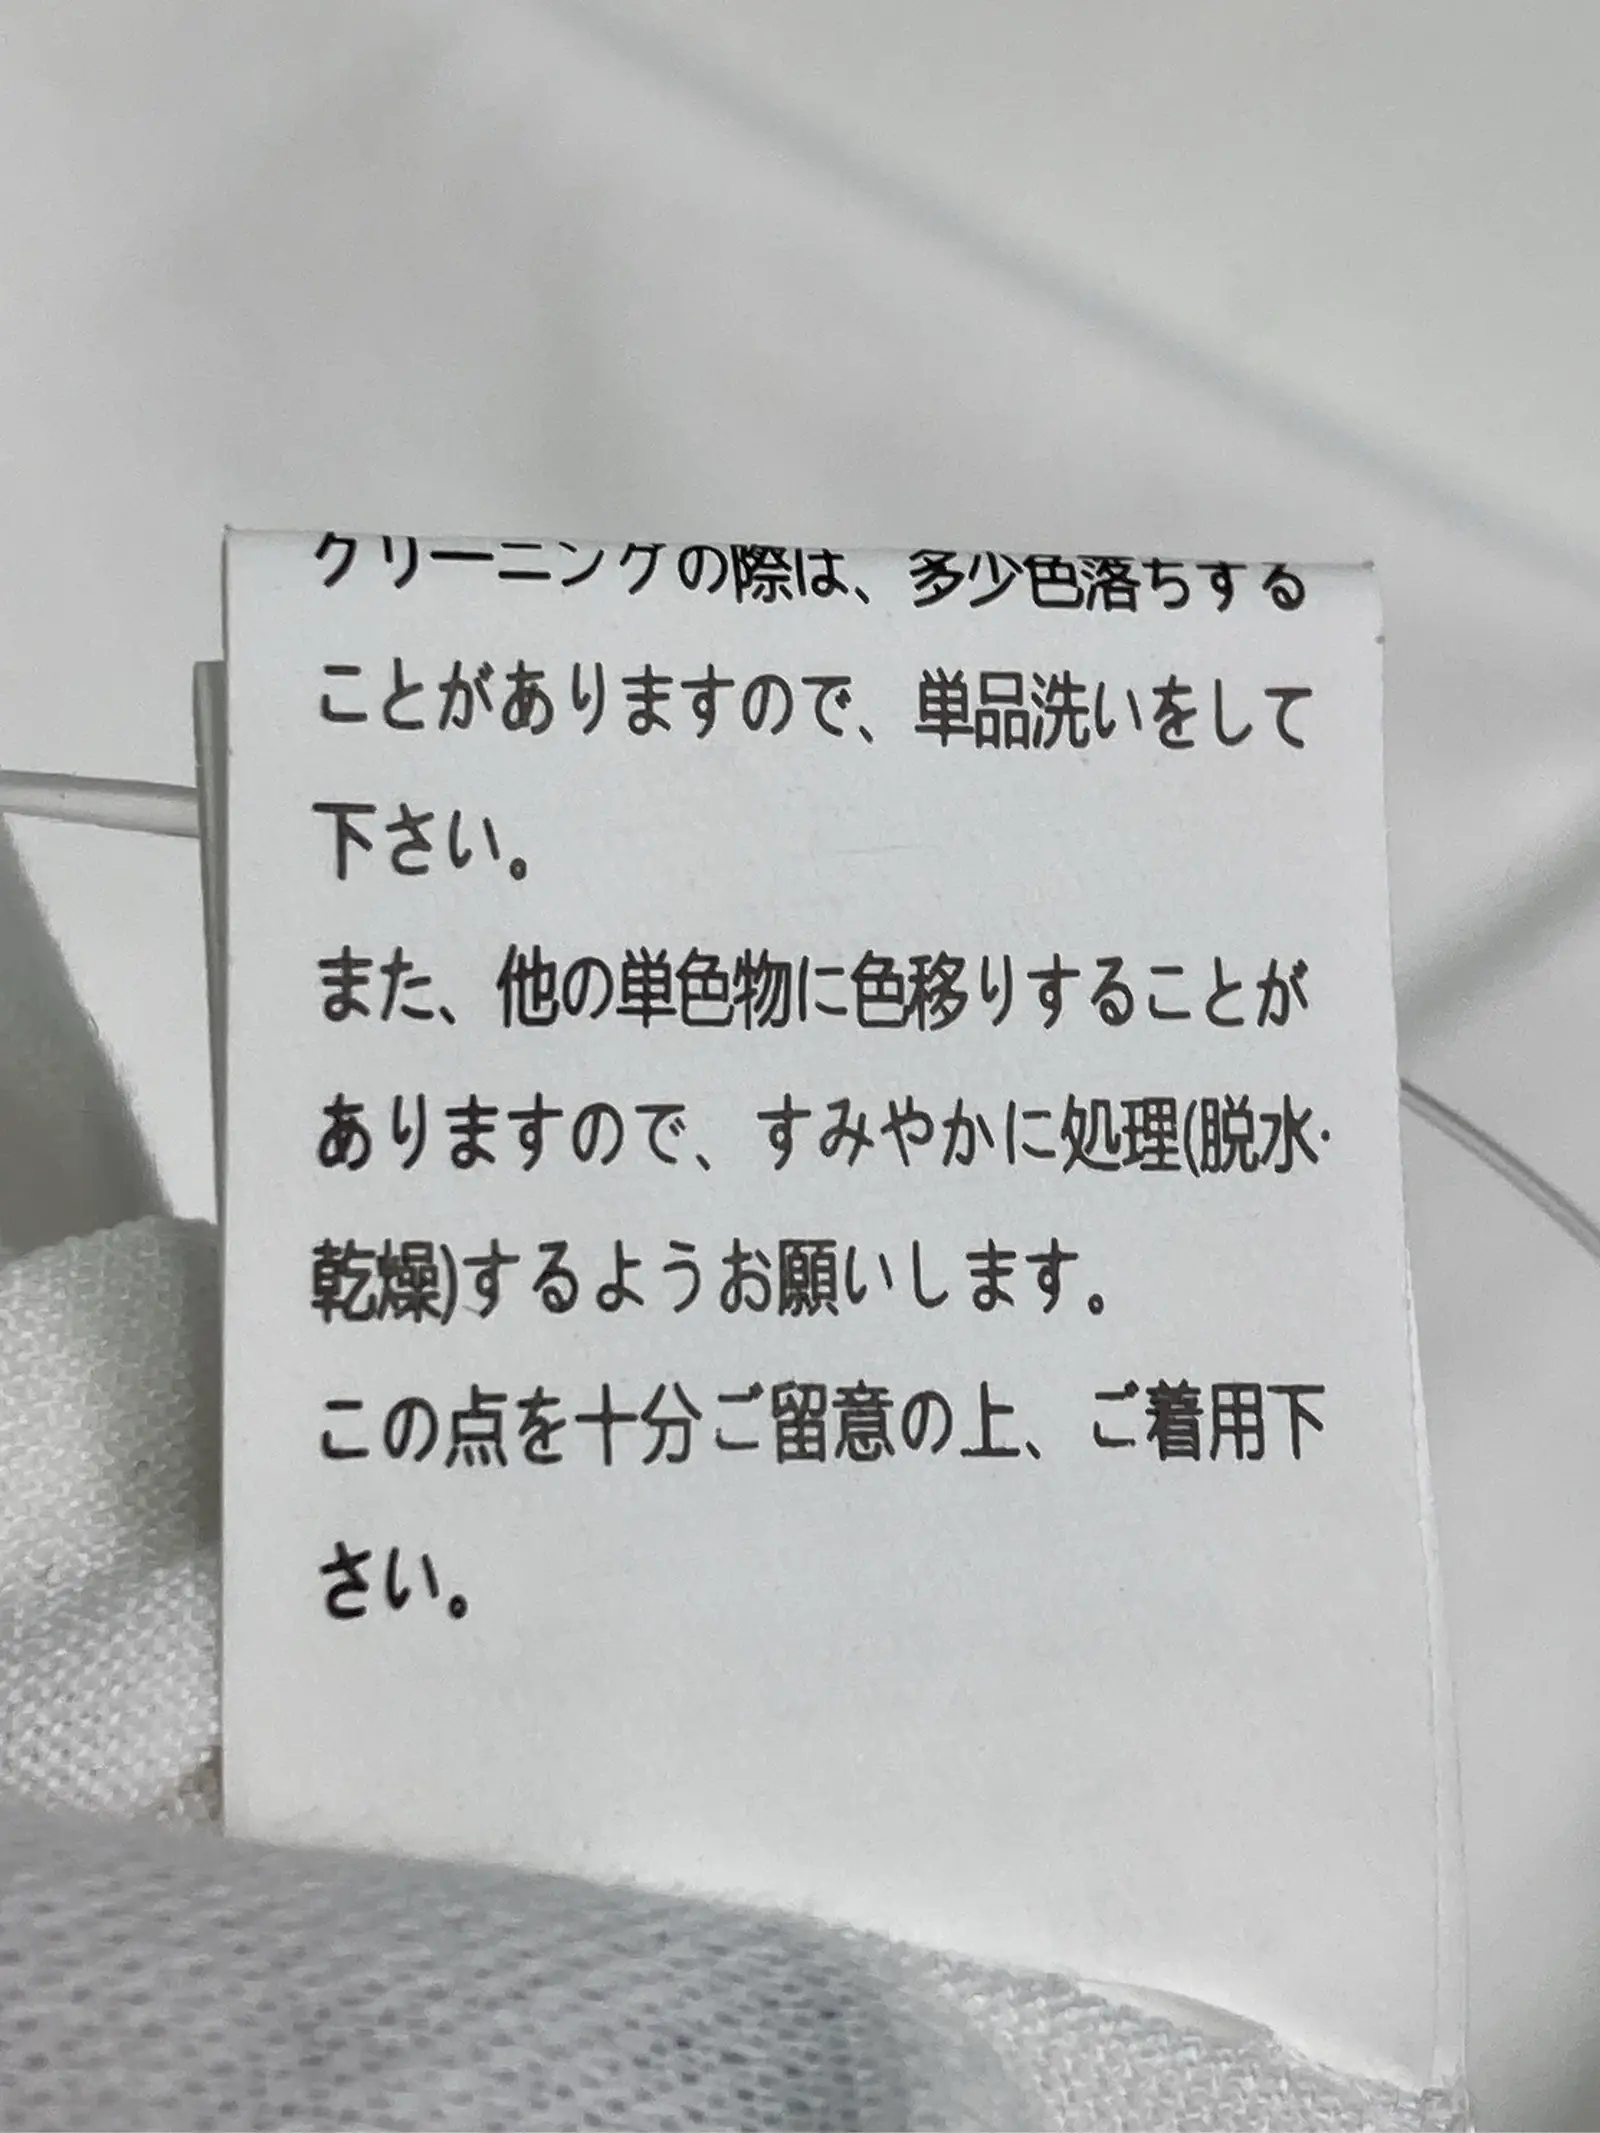 クリーニングの際は、多少色落ちする
ことがありますので、単品洗いをして
下さい。
また、他の単色物に色移りすることが
ありますので、すみやかに処理(脱水·
乾燥)するようお願いします。
この点を十分ご留意の上、ご着用下
さい。